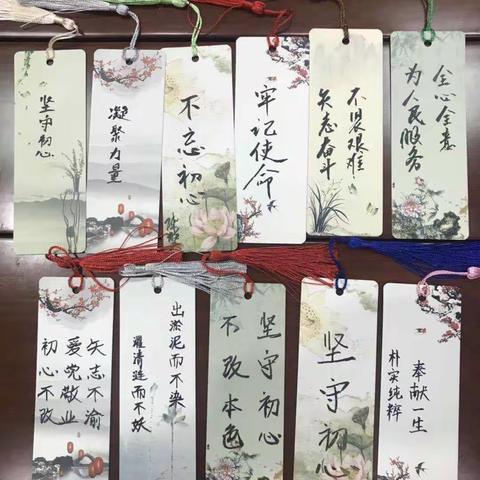 坚守初心
凝聚力量
不忘初心
牢记使命
不畏艰难
矢志奋斗
全心全意
为人民服务
矢志不渝
爱党敬业
初心不改
出淤泥而不染
濯清涟而不妖
坚守初心
不改本色
坚守初心
奉献一生
朴实纯粹